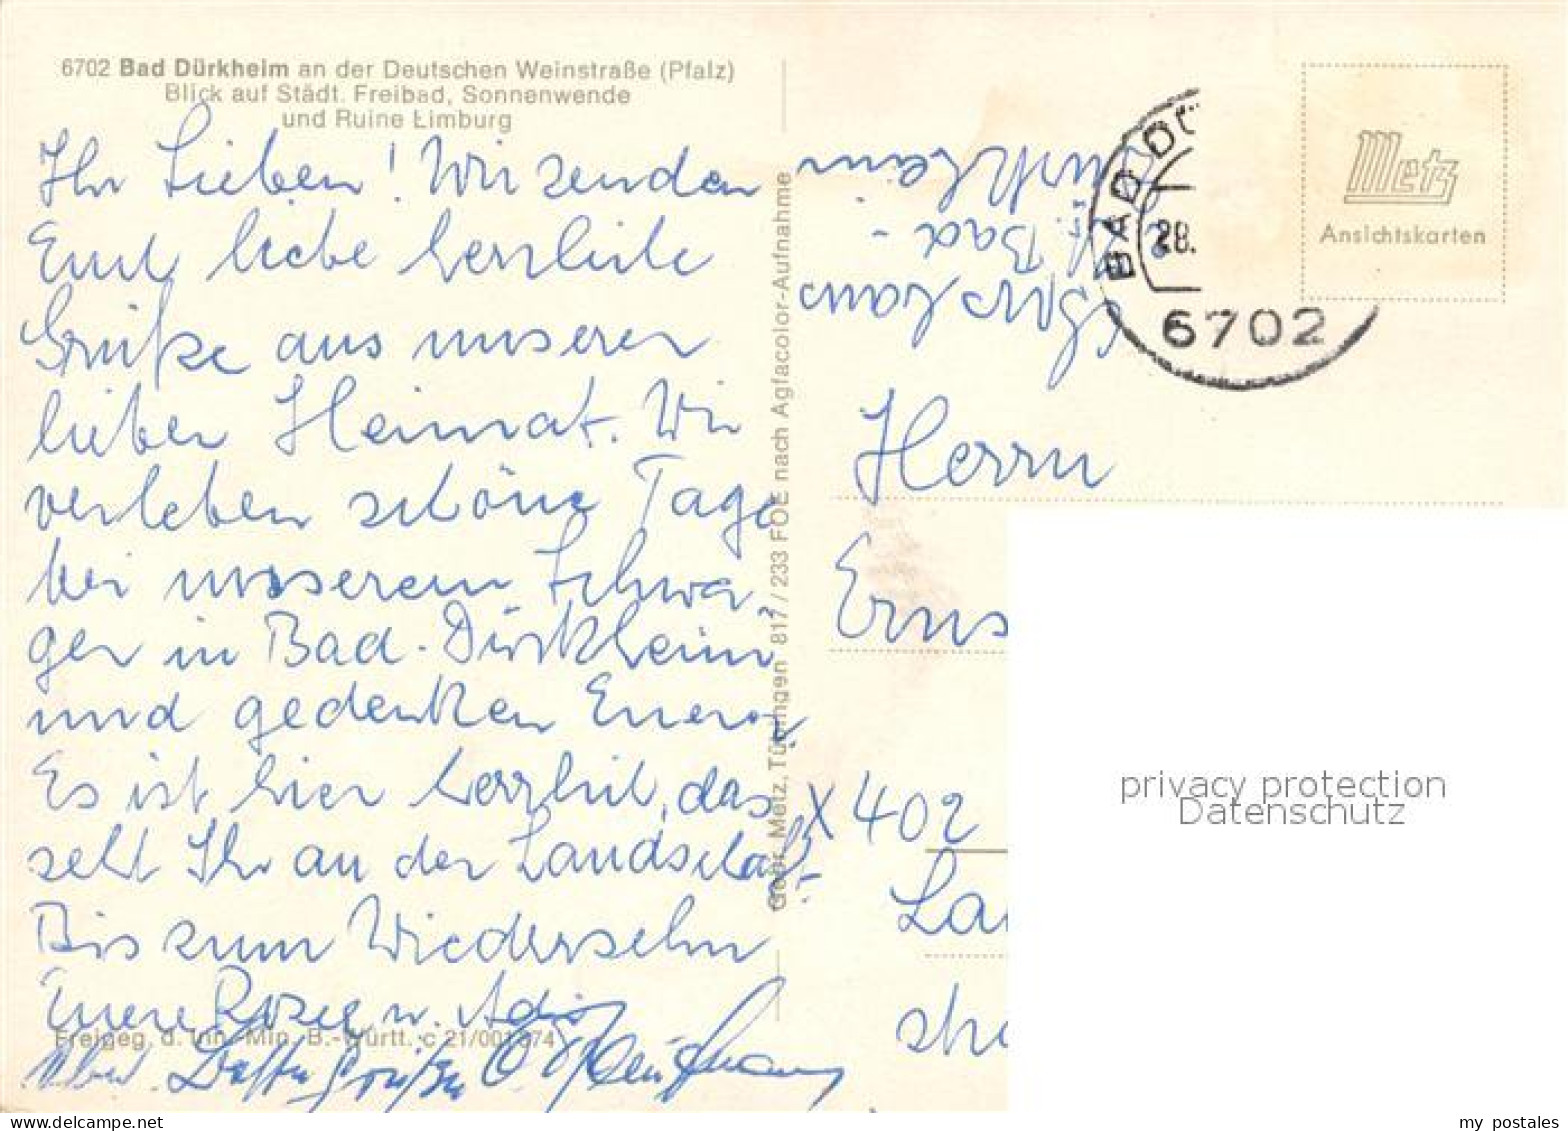 6702 Bad Dürkheim an der Deutschen Weinstraße (Pfalz)
Blick auf Städt. Freibad, Sonnenwende
und Ruine Limburg
Ihr Lieben! Wir senden
Euch liebe herzliche
Grüße aus unserer
lieben Heimat. Wir
verleben schöne Tage
bei unserem Schwa-
ger in Bad-Dürkheim
und gedenken Euerer
Es ist hier herrlich, das
seht Ihr an der Landschaft
Bis zum Wiedersehn
Euere u.
Freigeg. d. Inn. Min. B.-Württ. c 21/001874
Grüßen
Gebr. Metz, Tübingen 817/233 FOE nach Agfacolor-Aufnahme
Bad-
Dürkheim
BAD DÜ
28.
6702
Metz
Ansichtskarten
Herrn
Erns
X 402
La
privacy protection
Datenschutz
my_postales